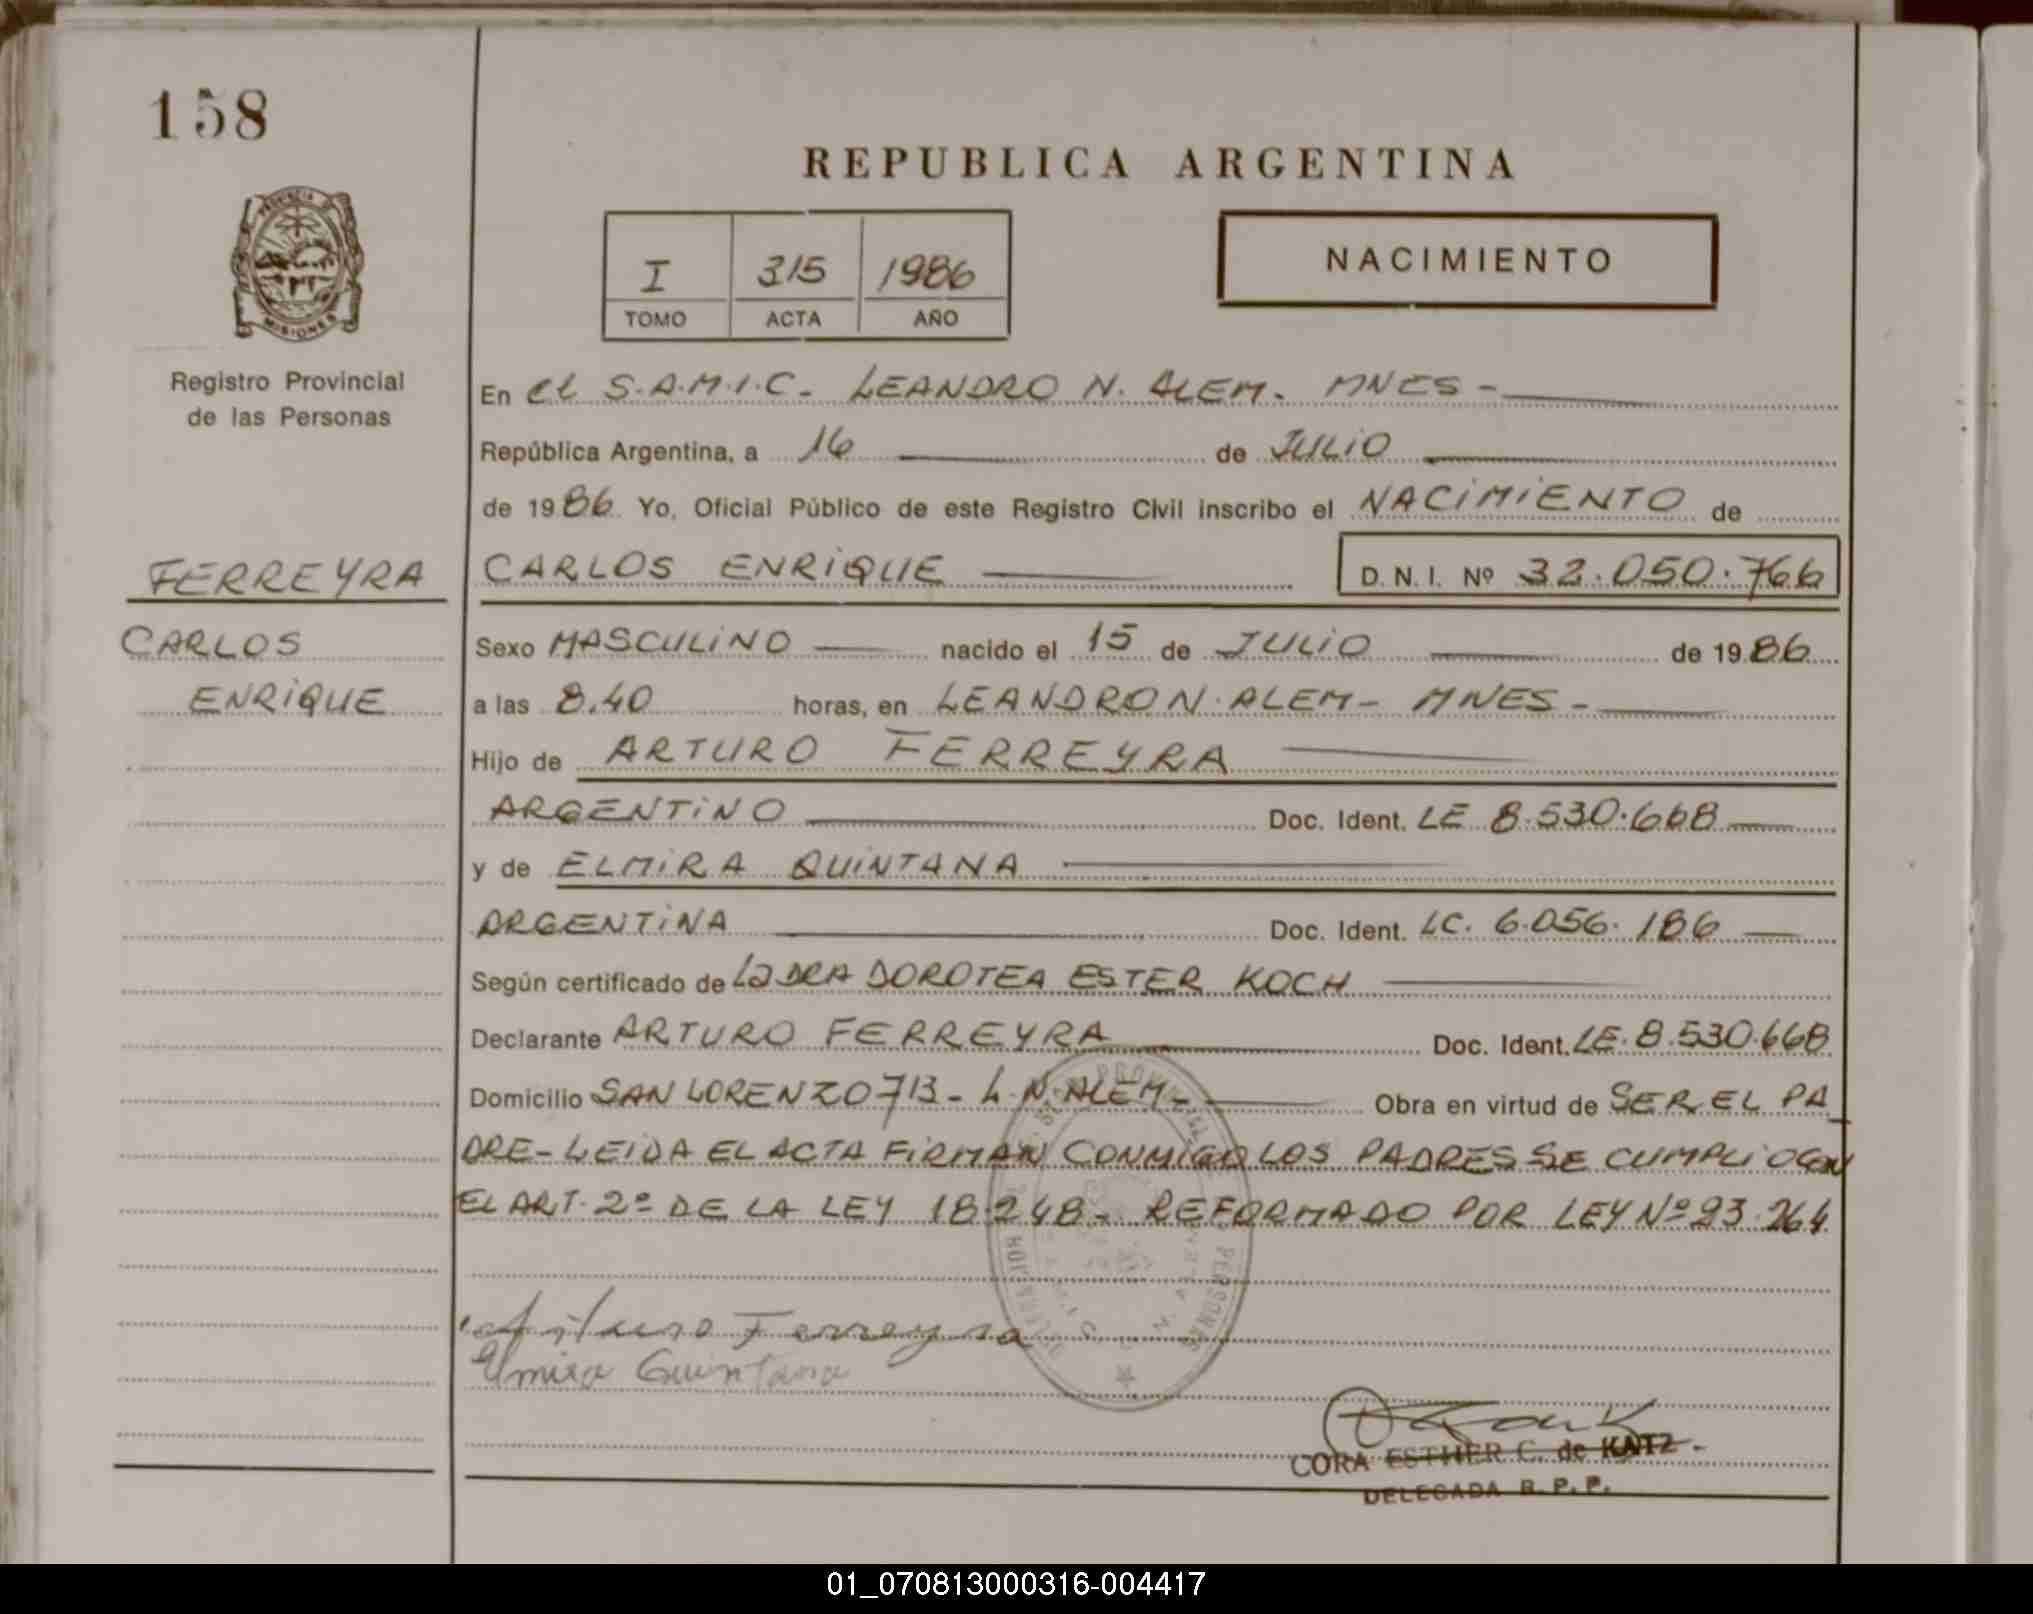 158
REPUBLICA ARGENTINA
PROVINCIA
MISIONES
Registro Provincial
de las Personas
I 315 1986
TOMO ACTA AÑO
NACIMIENTO
En el S.A.M.I.C. - LEANDRO N. ALEM. MNES -
República Argentina, a 16 de JULIO
de 1986 Yo, Oficial Público de este Registro Civil inscribo el NACIMIENTO de
FERREYRA
CARLOS ENRIQUE D.N.I. Nº 32.050.766
CARLOS
ENRIQUE
Sexo MASCULINO nacido el 15 de JULIO de 1986
a las 8.40 horas, en LEANDRO N. ALEM - MNES -
Hijo de ARTURO FERREYRA
ARGENTINO Doc. Ident. LE 8.530.668
y de ELMIRA QUINTANA
ARGENTINA Doc. Ident. LC. 6.056.186
Según certificado de La DRA DOROTEA ESTER KOCH
Declarante ARTURO FERREYRA Doc. Ident. LE. 8.530.668
Domicilio SAN LORENZO 713 - L.N. ALEM - Obra en virtud de SER EL PA
DRE - LEIDA EL ACTA FIRMAN CONMIGO LOS PADRES SE CUMPLIO CON
EL ART. 2º DE LA LEY 18.248 - REFORMADO POR LEY Nº 23.264
Arturo Ferreyra
Elmira Quintana
CORA ESTHER C. de KATZ
DELEGADA R.P.P.
01_070813000316-004417